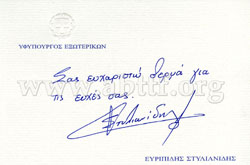 ΥΦΥΠΟΥΡΓΟΣ ΕΞΩΤΕΡΙΚΩΝ
Σας ευχαριστώ θερμά για
τις ευχές σας.
http://www.apttr.org
ΕΥΡΙΠΙΔΗΣ ΣΤΥΛΙΑΝΙΔΗΣ